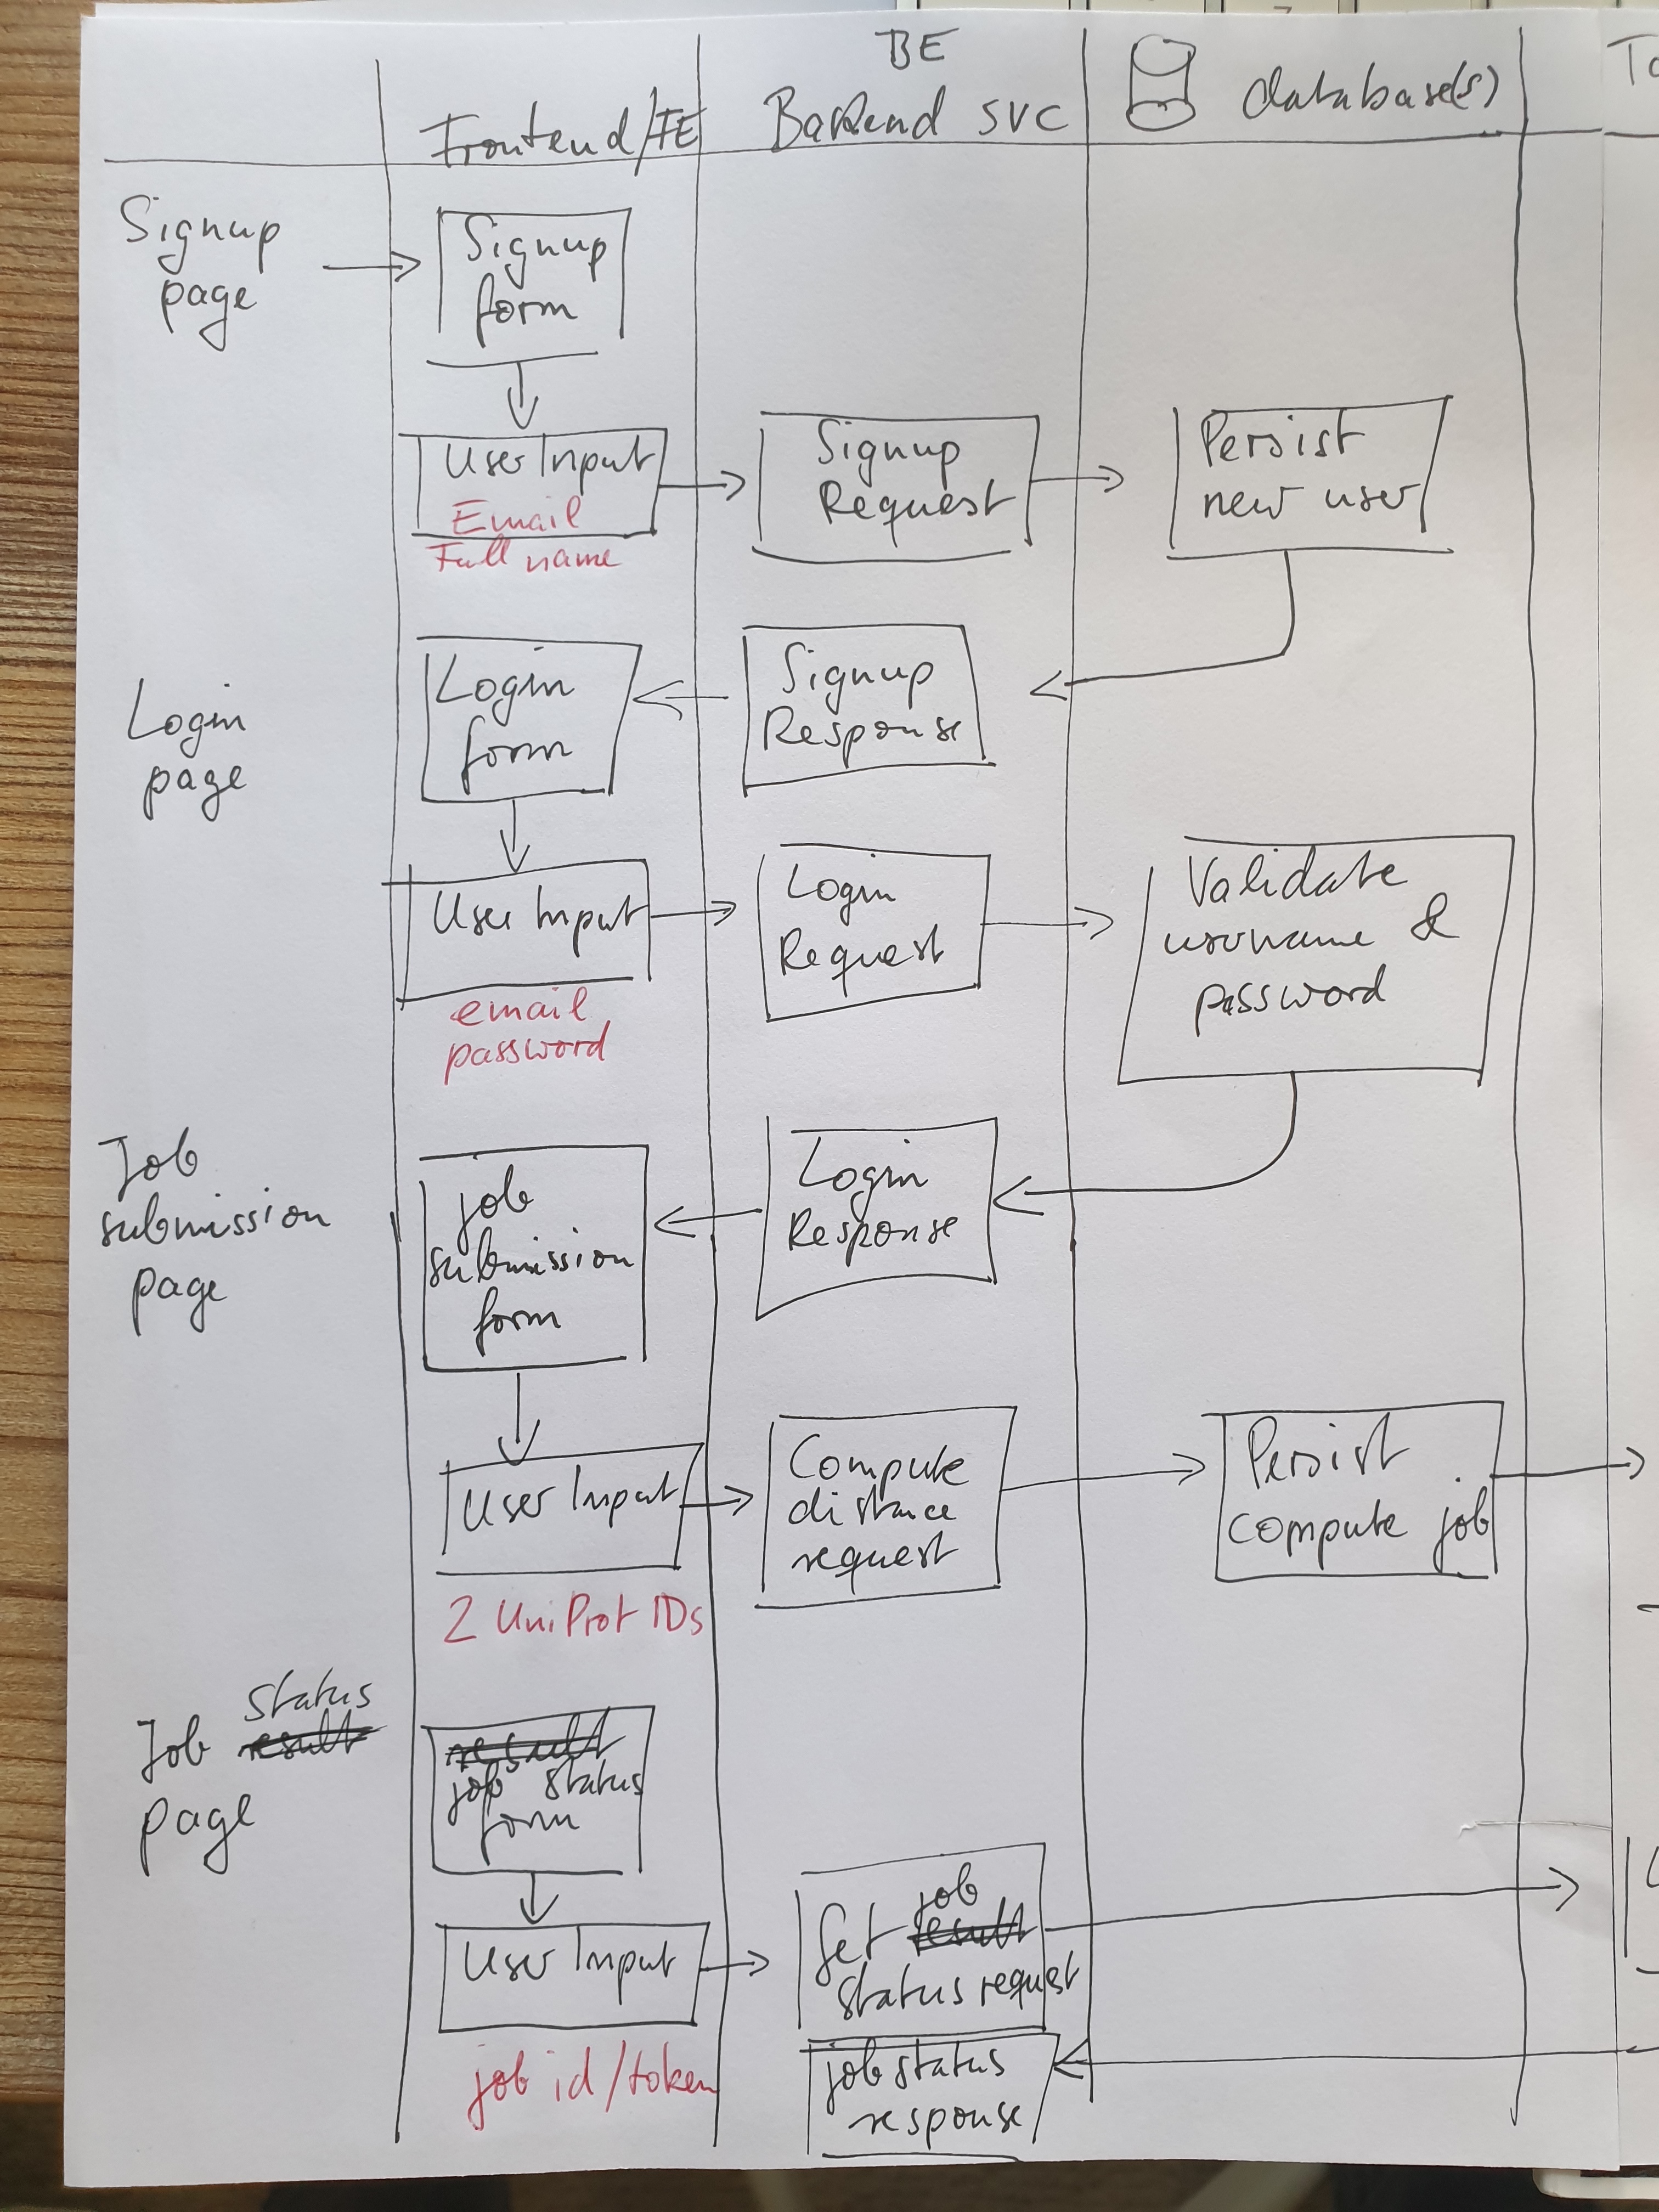 BE
Frontend/FE
Backend svc
database(s)
Signup
page
Signup
form
User Input
Email
Full name
Signup
Request
Persist
new user
Login
page
Login
form
Signup
Response
User Input
email
password
Login
Request
Validate
username &
password
Job
submission
page
job
submission
form
Login
Response
User Input
2 UniProt IDs
Compute
distance
request
Persist
compute job
Job status
result
page
result
job status
form
User Input
job id/token
Get job
result
status request
job status
response